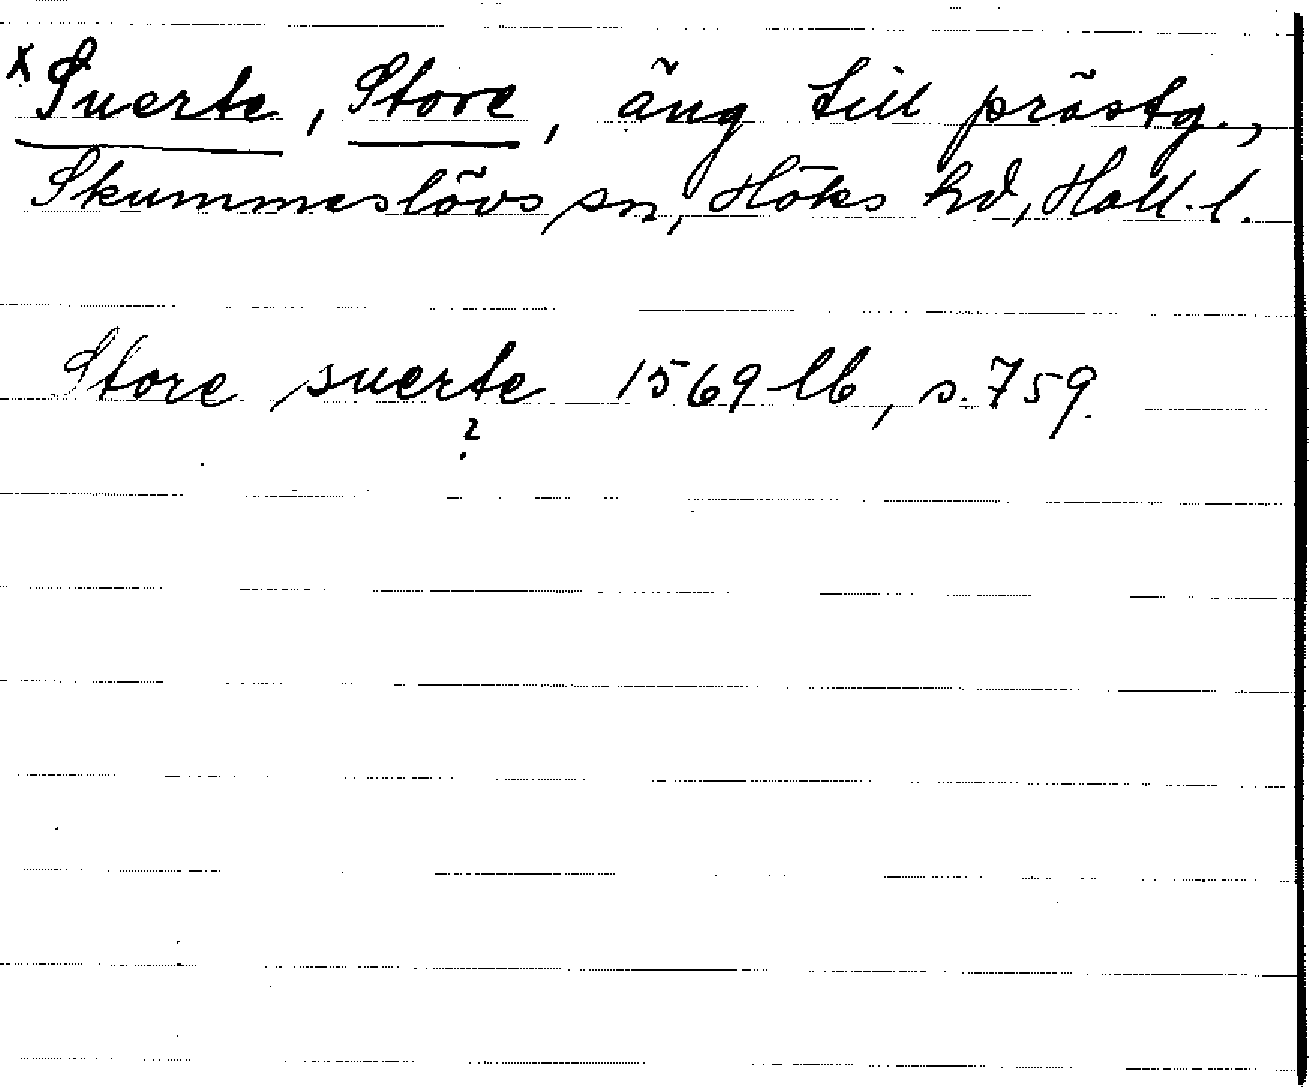 x Suerte, Store, äng till prästg.,
Skummeslövs sn, Höks hd, Hall. l.
Store suerte 1569 lb, s. 759.
?